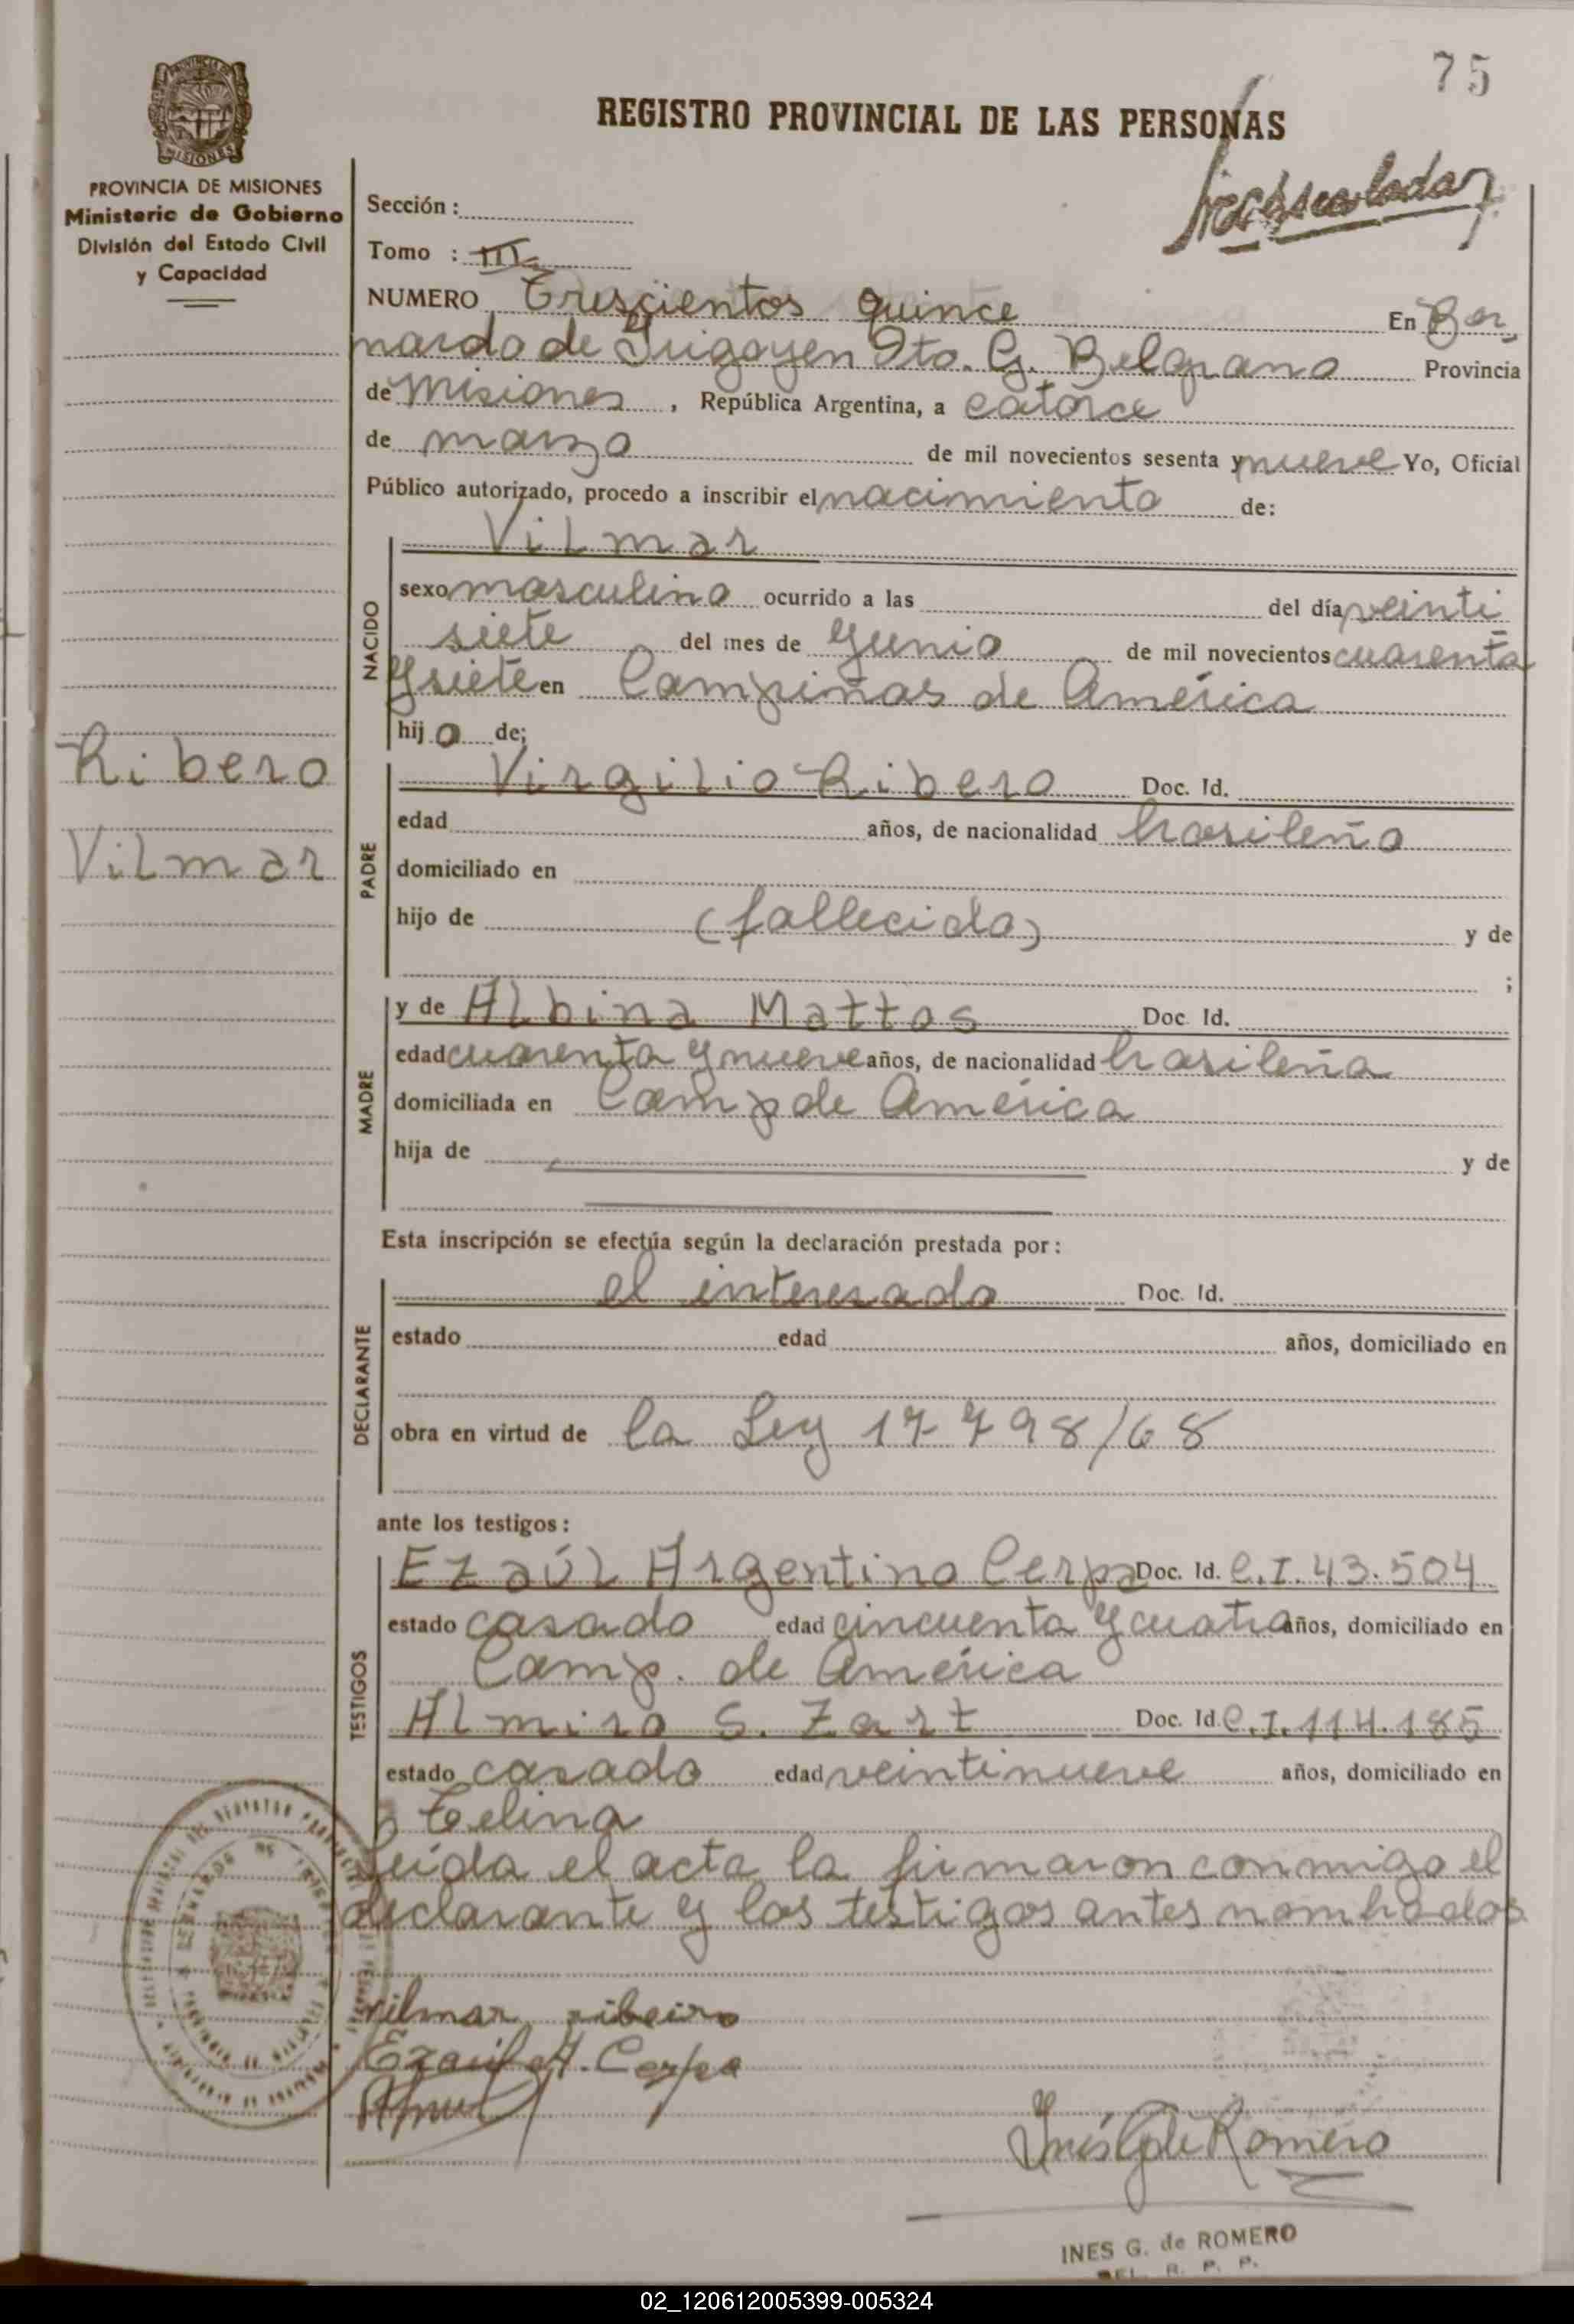 75
REGISTRO PROVINCIAL DE LAS PERSONAS
PROVINCIA DE MISIONES
Ministerio de Gobierno
División del Estado Civil
y Capacidad
Sección :
Tomo : III
NUMERO Trescientos quince En Ber
nardo de Irigoyen Dto. G. Belgrano Provincia
de Misiones, República Argentina, a catorce
de marzo de mil novecientos sesenta y nueve Yo, Oficial
Público autorizado, procedo a inscribir el nacimiento de:
NACIDO
Vilmar
sexo masculino ocurrido a las del día veinti
siete del mes de Yunio de mil novecientos cuarenta
y siete en Campiñas de América
hijo de;
Ribero
Vilmar
PADRE
Virgilio Ribero Doc. Id.
edad años, de nacionalidad brasileño
domiciliado en
hijo de (fallecido) y de
;
MADRE
y de Albina Mattos Doc. Id.
edad cuarenta y nueve años, de nacionalidad brasileña
domiciliada en Camp de América
hija de y de
Esta inscripción se efectúa según la declaración prestada por:
DECLARANTE
el interesado Doc. Id.
estado edad años, domiciliado en
obra en virtud de la Ley 17798/68
ante los testigos:
TESTIGOS
Ezaúl Argentino Cerpa Doc. Id. C.I. 43.504
estado casado edad cincuenta y cuatro años, domiciliado en
Camp. de América
Almiro S. Zart Doc. Id. C.I. 114.185
estado casado edad veintinueve años, domiciliado en
leída el acta la firmaron conmigo el
declarante y los testigos antes nombrados
vilmar ribeiro
Ezaúl A. Cerpa
Inés G de Romero
INES G. de ROMERO
DEL. R. P. P.
02_120612005399-005324